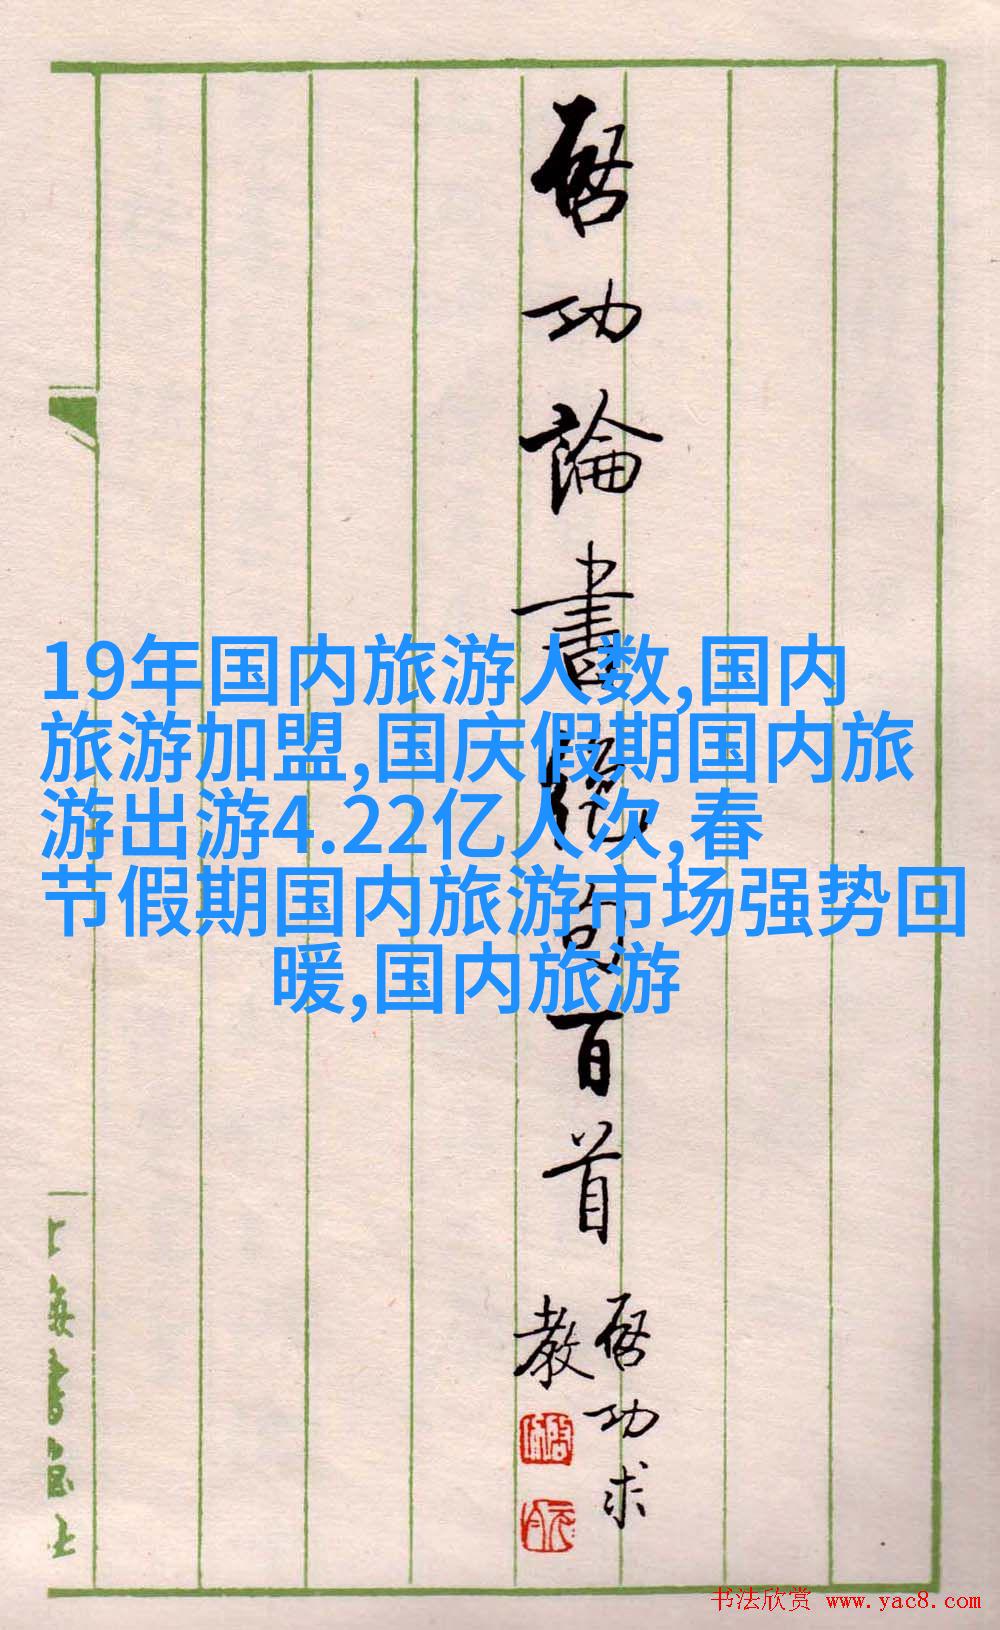 啓功論書絕句百首
啓功求
教
19年国内旅游人数,国内
旅游加盟,国庆假期国内旅
游出游4.22亿人次,春
节假期国内旅游市场强势回
暖,国内旅游
上海書画社
书法欣赏 www.yac8.com